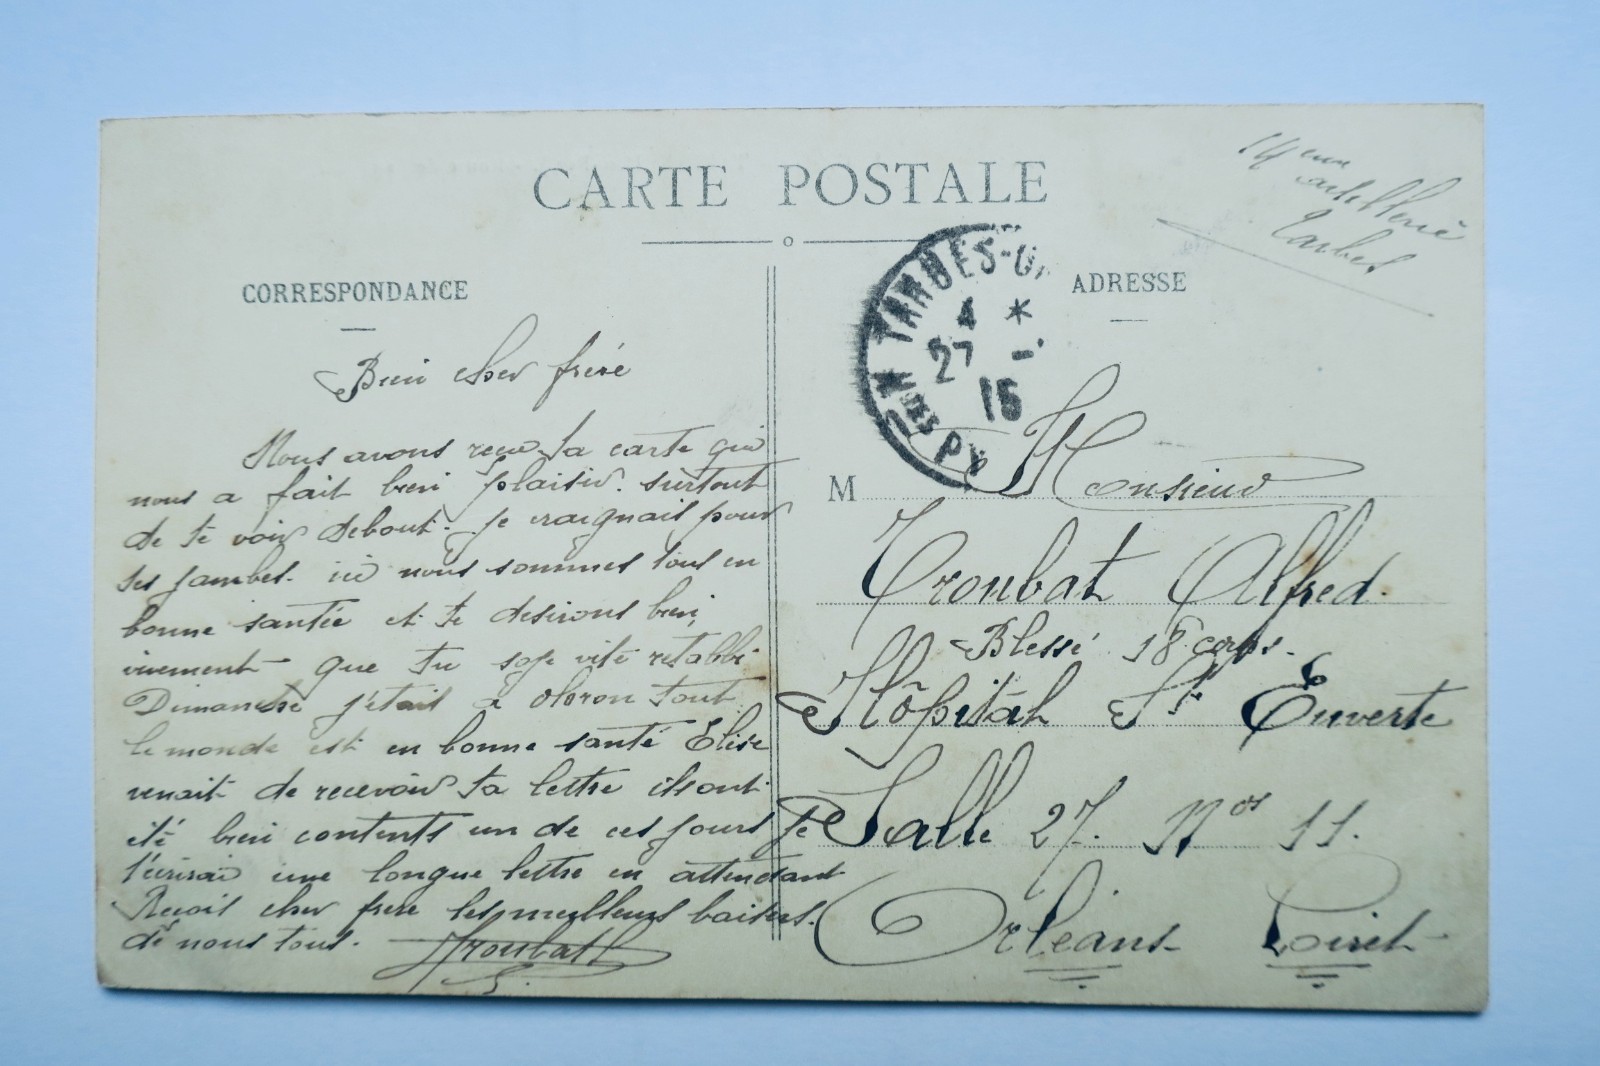 14eme
artillerie
Tarbes
CARTE POSTALE
CORRESPONDANCE
Bien cher frère
Nous avons reçu ta carte qui
nous a fait bien plaisir. surtout
de te voir debout. je craignait pour
tes jambes. ici nous sommes tous en
bonne santée et te desirons bien
vivement que tu soye vite retabbi
Dimanche j'étais a oloron tout
le monde est en bonne santé Elise
venait de recevoir ta lettre ils ont
été bien contents un de ces jours je
t'écrirai une longue lettre en attendant
Reçois cher frere les meilleurs baisers.
de nous tous. Troubat
TARBES-
4 *
27 -
15
PY
ADRESSE
M Monsieur
Troubat Alfred.
Blessé 18e corps.
Hôpital St Euverte
Salle 27. Nos 11.
Orléans Loiret